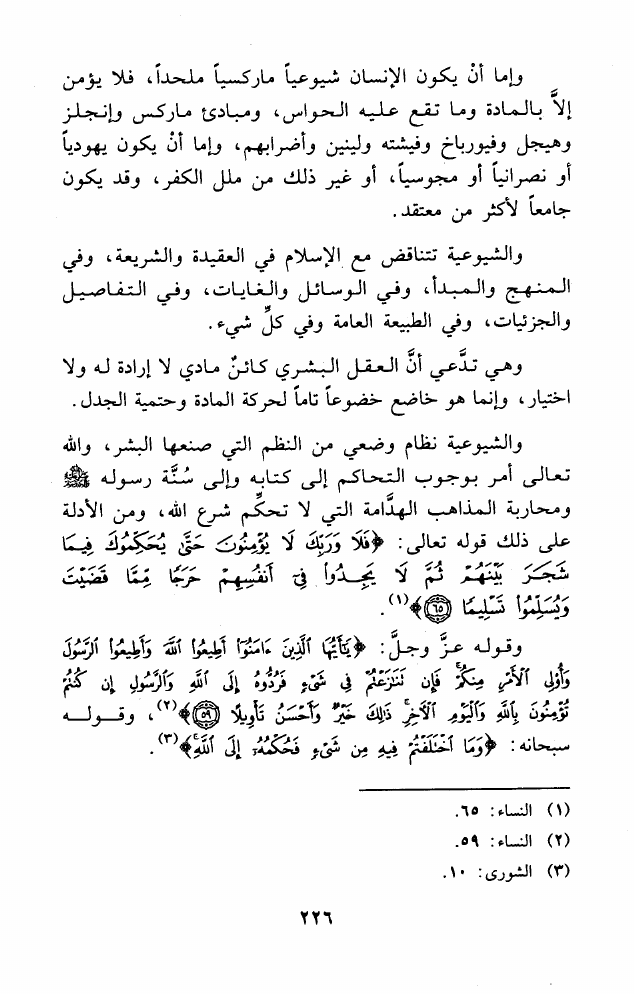 وإما أنْ يكون الإنسان شيوعياً ماركسياً ملحداً، فلا يؤمن
إلاَّ بالمادة وما تقع عليه الحواس، ومبادئ ماركس وإنجلز
وهيجل وفيورباخ وفيشته ولينين وأضرابهم، وإما أنْ يكون يهودياً
أو نصرانياً أو مجوسياً، أو غير ذلك من ملل الكفر، وقد يكون
جامعاً لأكثر من معتقد.
والشيوعية تتناقض مع الإسلام في العقيدة والشريعة، وفي
المنهج والمبدأ، وفي الوسائل والغايات، وفي التفاصيل
والجزئيات، وفي الطبيعة العامة وفي كلِّ شيء.
وهي تدَّعي أنَّ العقل البشري كائنٌ مادي لا إرادة له ولا
اختيار، وإنما هو خاضع خضوعاً تاماً لحركة المادة وحتمية الجدل.
والشيوعية نظام وضعي من النظم التي صنعها البشر، والله
تعالى أمر بوجوب التحاكم إلى كتابه وإلى سُنَّة رسوله ﷺ
ومحاربة المذاهب الهدَّامة التي لا تحكِّم شرع الله، ومن الأدلة
على ذلك قوله تعالى: ﴿فَلَا وَرَبِّكَ لَا يُؤْمِنُونَ حَتَّىٰ يُحَكِّمُوكَ فِيمَا
شَجَرَ بَيْنَهُمْ ثُمَّ لَا يَجِدُواْ فِىٓ أَنفُسِهِمْ حَرَجًا مِّمَّا قَضَيْتَ
وَيُسَلِّمُواْ تَسْلِيمًا ٦٥﴾(١).
وقوله عزَّ وجلَّ: ﴿يَٰٓأَيُّهَا ٱلَّذِينَ ءَامَنُوٓاْ أَطِيعُواْ ٱللَّهَ وَأَطِيعُواْ ٱلرَّسُولَ
وَأُوْلِى ٱلْأَمْرِ مِنكُمْ ۖ فَإِن تَنَٰزَعْتُمْ فِى شَىْءٍ فَرُدُّوهُ إِلَى ٱللَّهِ وَٱلرَّسُولِ إِن كُنتُمْ
تُؤْمِنُونَ بِٱللَّهِ وَٱلْيَوْمِ ٱلْأَخِرِ ۚ ذَٰلِكَ خَيْرٌ وَأَحْسَنُ تَأْوِيلًا ٥٩﴾(٢)، وقوله
سبحانه: ﴿وَمَا ٱخْتَلَفْتُمْ فِيهِ مِن شَىْءٍ فَحُكْمُهُۥٓ إِلَى ٱللَّهِ ۚ﴾(٣).
(١) النساء: ٦٥.
(٢) النساء: ٥٩.
(٣) الشورى: ١٠.
٢٢٦